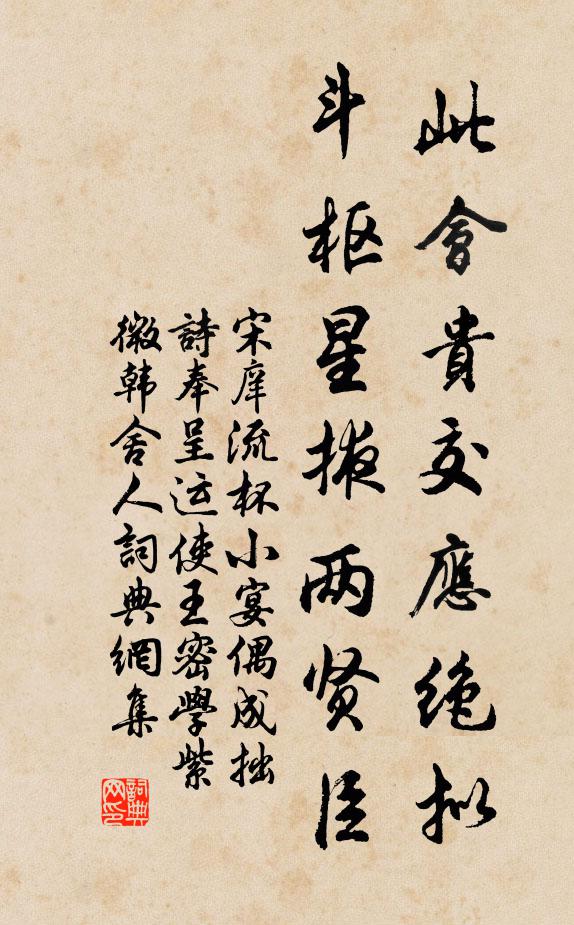 此會貴交應絶拟
斗枢星掖两贤臣
宋庠流杯小宴偶成拙
詩奉呈运使王密學紫
微韩舍人詞典網集
詞典网印